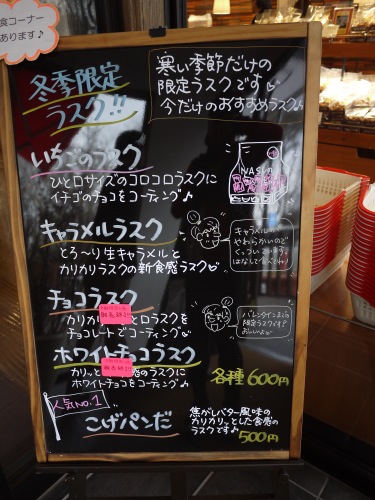 食コーナー
あります♪
冬季限定
ラスク!!
寒い季節だけの
限定ラスクです♡
今だけのおすすめラスク♪
いちごのラスク
ひと口サイズのコロコロラスクに
イチゴのチョコをコーティング♪
NASU
キャラメルラスク
とろ〜り生キャラメルと
カリカリラスクの新食感ラスク♡
キャラメルが
やわらかいので
くっついています。
はなして食べてね♪
チョコラスク
カリカリ
とロラスクを
チョコレートでコーティング♡
バレンタインまでの
限定ラスクです♪
おいしいよ♡
ホワイトチョコラスク
カリッと
感のラスクに
ホワイトチョコをコーティング♪
各種600円
人気NO.1
こげパンだ
焦がしバター風味の
カリカリッとした食感の
ラスクです♪
500円